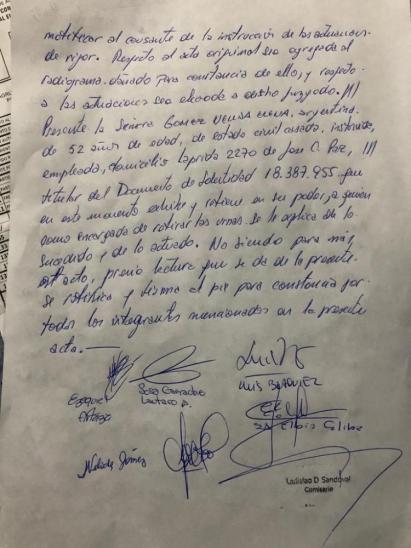 notificar al causante de la instrucción de las actuaciones
de rigor. Respecto al acta original sea agregada al
radiograma dañado para constancia de ello, y respecto
a las actuaciones sea elevada a dicho juzgado.///
Presente la Señora Gomez argentina,
de 52 años de edad, de estado civil casada, instruida,
empleada, domicilio Laprida 2270 de Jose C. Paz, ///
titular del Documento de Identidad 18.387.955 que
en este momento exhibe y retiene en su poder, a quien
como encargada de retirar las urnas se le aplica de lo
sucedido y de lo actuado. No siendo para más
el acto, previa lectura que se da de la presente
se ratifica y firma al pie para constancia por
todos los integrantes mencionados en la presente
acta.—
Ezequiel
Lautaro
LUIS
Gómez
Ladislao D Sandoval
Comisario